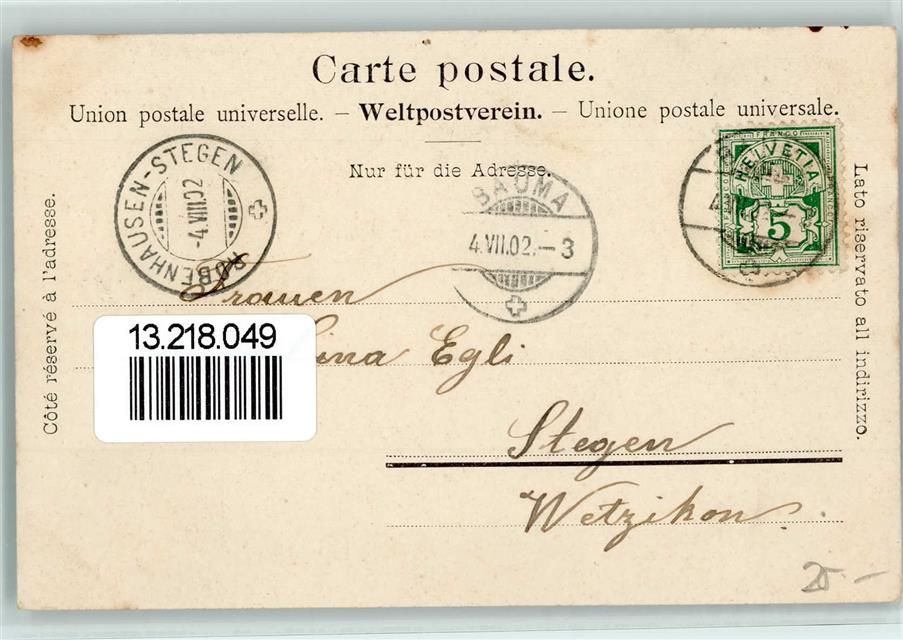 Carte postale.
Union postale universelle. – Weltpostverein. – Unione postale universale.
Nur für die Adresse.
Côté réservé à l'adresse.
Lato riservato all indirizzo.
ROBENHAUSEN-STEGEN
-4.VIII.02
BAUMA
4.VII.02.-3
FRANCO
HELVETIA
5
13.218.049
Egli
Stegen
Wetzikon.
25.-